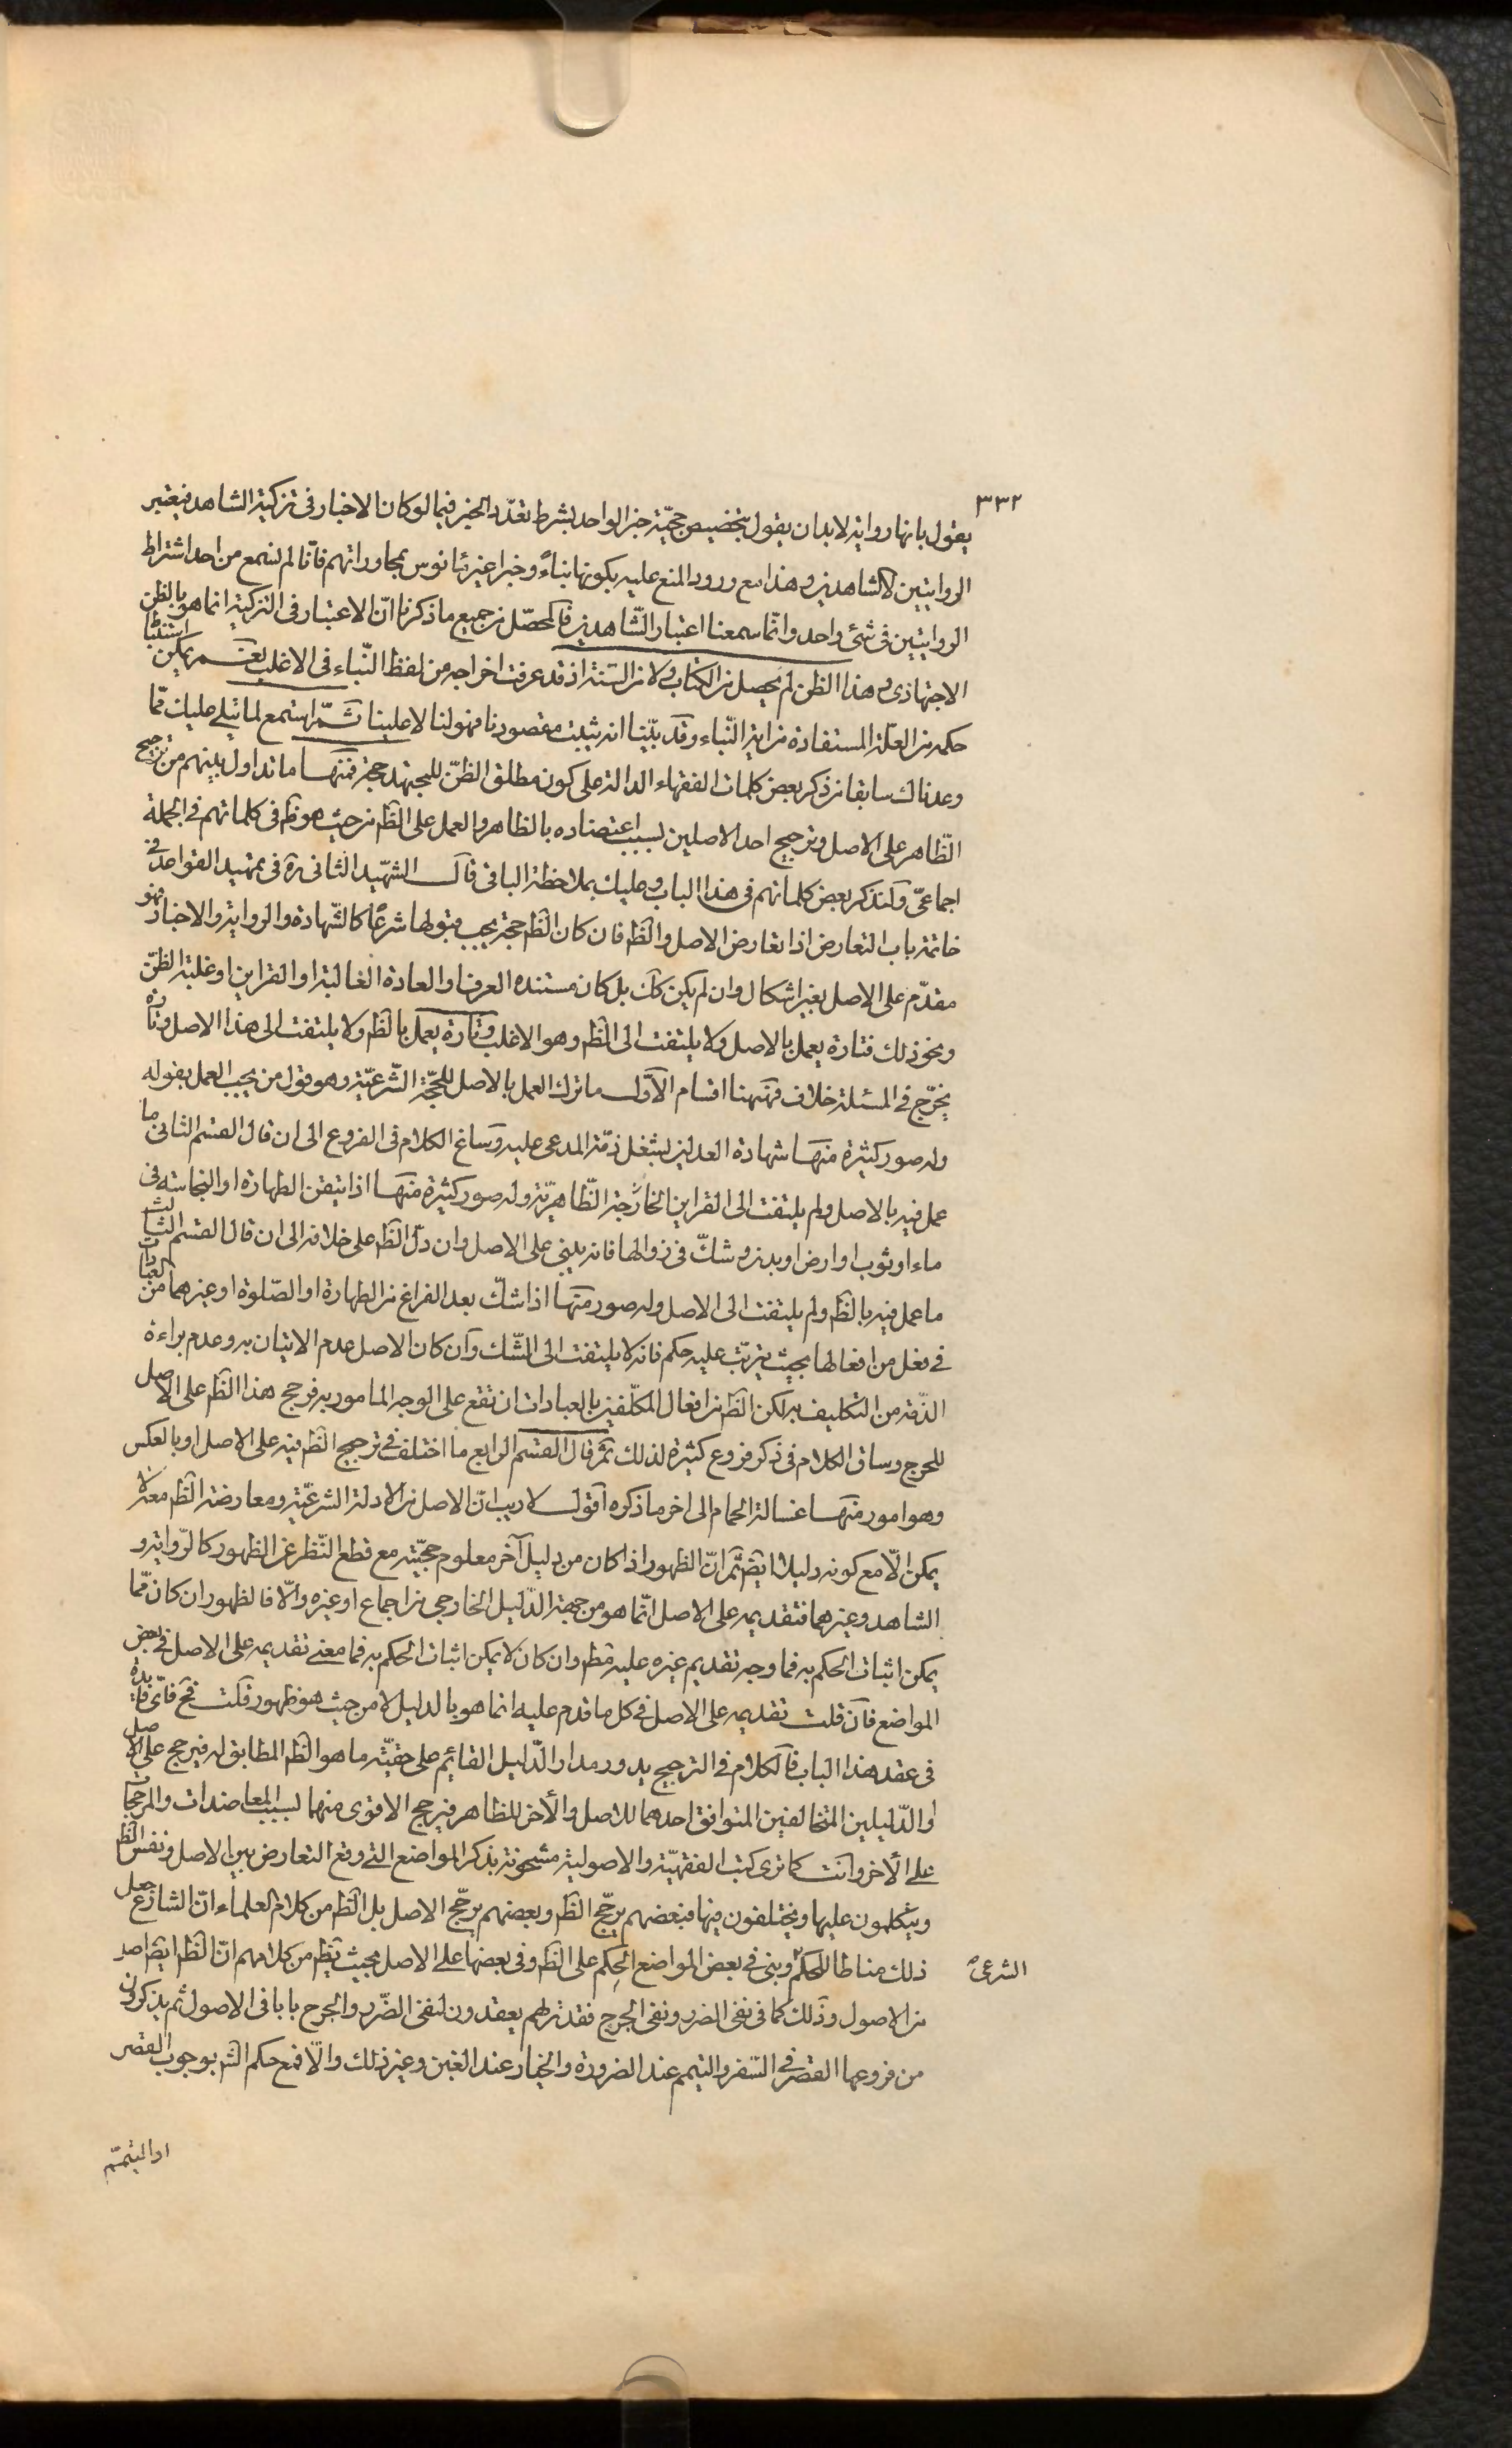 ٣٣٢
يقول بانها رواية لا بد ان يقول بتخصيص حجيّة خبر الواحد بشرط تعدّد المخبر فيما لو كان الاخبار فى تزكية الشاهد فيعتبر
الروايتين لا الشاهدين وهذا مع ورود المنع عليه بكونها بناءً وخبرا غير مانوس بمحاوراتهم فانّا لم نسمع من احد اشتراط
الروايتين فى شئ واحد وانّما سمعنا اعتبار الشّاهدين فالمحصّل من جميع ما ذكرنا انّ الاعتبار فى التزكية انما هو بالظن
الاجتهادى وهذا الظن لم يحصل من الكتاب ولا من السّنة اذ قد عرفت اخراجه من لفظ النّباء فى الاغلب نعم يمكن استنباط
حكمه من العلّة المستفادة من اية النّباء وقد بيّنا انه يثبت مقصودنا فهو لنا لا علينا ثمّ استمع لما يتلى عليك ممّا
وعدناك سابقا من ذكر بعض كلمات الفقهاء الدالة على كون مطلق الظنّ للمجتهد حجة فمنها ما تداول بينهم من ترجيح
الظّاهر على الاصل وترجيح احد الاصلين بسبب اعتضاده بالظاهر والعمل على الظم من حيث هو ظم فى كلماتهم فى الجملة
اجماعىّ ولنذكر بعض كلماتهم فى هذا الباب وعليك بملاحظة الباقى قال الشهيد الثانى ره فى تمهيد القواعد فى
خاتمة باب التعارض اذا تعارض الاصل والظم فان كان الظم حجة يجب قبولها شرعًا كالشّهادة والرواية والاخبار فهو
مقدّم على الاصل بغير اشكال وان لم يكن كك بل كان مستنده العرف او العادة الغالبة او القراين او غلبة الظنّ
ونحو ذلك فتارة يعمل بالاصل ولا يلتفت الى الظم وهو الاغلب وتارة يعمل بالظم ولا يلتفت الى هذا الاصل وتارة
يخرّج فى المسئلة خلاف فهيهنا اقسام الاوّل ما ترك العمل بالاصل للحجّة الشّرعيّة وهو قول من يجب العمل بقوله
وله صور كثيرة منها شهادة العدلين بشغل ذمّة المدعى عليه وساغ الكلام فى الفروع الى ان قال القسم الثانى ما
عمل فيه بالاصل ولم يلتفت الى القراين الخارجة الظّاهريّة وله صور كثيرة منها اذا تيقن الطهارة او النجاسة فى
ماء او ثوب او ارض او بدن وشكّ فى زوالها فانه يبنى على الاصل وان دلّ الظم على خلافه الى ان قال القسم الثالث
ما عمل فيه بالظم ولم يلتفت الى الاصل وله صور منها اذا شكّ بعد الفراغ من الطهارة او الصّلوة او غيرهما من العبادات
فى فعل من افعالها بحيث يترتّب عليه حكم فانه لا يلتفت الى الشّك وان كان الاصل عدم الاتيان به وعدم براءة
الذّمة من التكليف به لكن الظم من افعال المكلّفين بالعبادات ان تقع على الوجه المامور به فرجح هذا الظم على الاصل
للحرج وساق الكلام فى ذكر فروع كثيرة لذلك ثم قال القسم الرابع ما اختلف فى ترجيح الظم فيه على الاصل او بالعكس
وهو امور منها غسالة الحمام الى اخر ما ذكره اقول لا ريب انّ الاصل من الادلة الشرعيّة ومعارضة الظم معه لا
يمكن الّا مع كونه دليلا ايضا ثم انّ الظهور اذا كان من دليل آخر معلوم حجيّته مع قطع النّظر عن الظهور كالرّواية و
الشاهد وغيرهما فتقديمه على الاصل انّما هو من جهة الدّليل الخارجى من اجماع او غيره والّا فالظهور ان كان ممّا
يمكن اثبات الحكم به فما وجه تقديم غيره عليه قطم وان كان لا يمكن اثبات الحكم به فما معنى تقديمه على الاصل فى بعض
المواضع فان قلت تقديمه على الاصل فى كل ما قدم عليه انما هو بالدليل لا من حيث هو ظهور قلت فح فاىّ فايدة
فى عقد هذا الباب فالكلام فى الترجيح يدور مدار الدّليل القائم على حقيّته ما هو الظم المطابق له فيرجح على الاصل
او الدّليلين المتخالفين المتوافق احدهما للاصل والأخر للظاهر فيرجح الاقوى منهما بسبب المعاضدات والمرجحات
على الأخر وانت كما ترى كتب الفقهيّة والاصولية مشحونة بذكر المواضع التى وقع التعارض بين الاصل ونفس الظم
ويتكلمون عليها ويختلفون فيها فبعضهم يرجّح الظم وبعضهم يرجّح الاصل بل الظم من كلام العلماء انّ الشارع جعل
ذلك مناطا للحكم وبنى فى بعض المواضع الحكم على الظم وفى بعضها على الاصل بحيث يظهر من كلامهم انّ الظم ايضا اصل
الشرعى
من الاصول وذلك كما فى نفى الضرر ونفى الحرج فقد تراهم يعقدون لنفى الضّرر والحرج بابا فى الاصول ثم يذكرون
من فروعها القصر فى السّفر والتيمم عند الضرورة والخيار عند الغبن وغير ذلك والّا فمع حكم الشم بوجوب القصر
او التيمّم